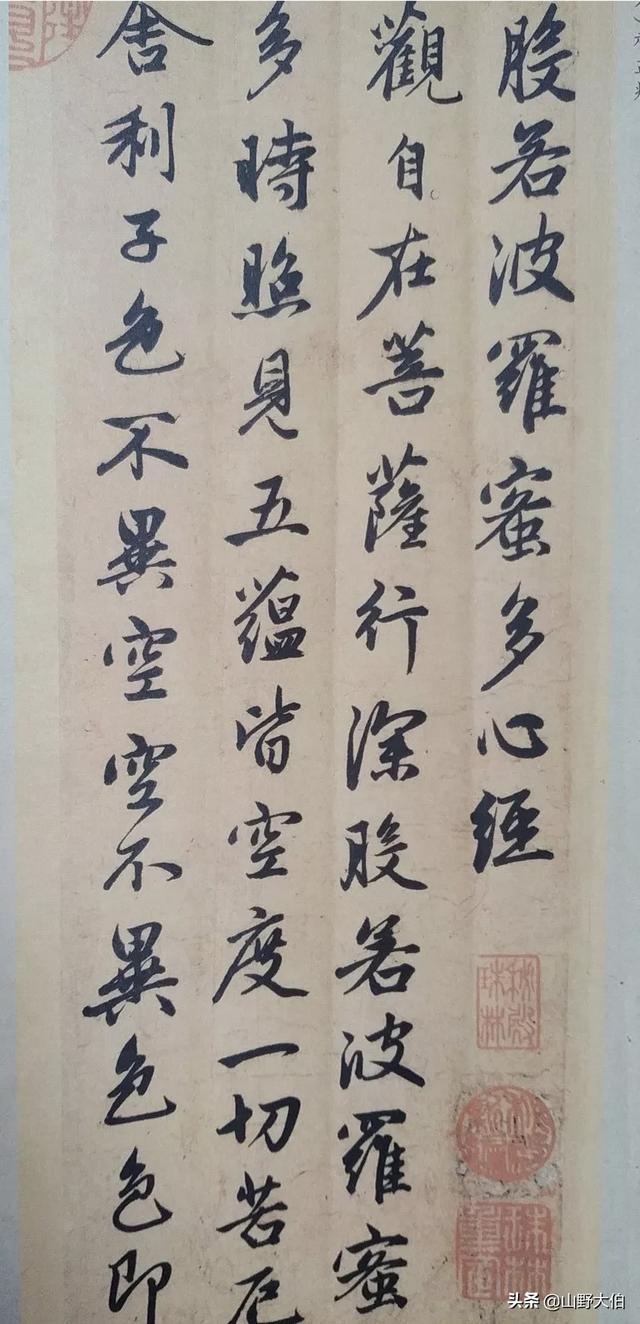 般若波羅蜜多心經
觀自在菩薩行深般若波羅蜜
多時照見五蘊皆空度一切苦厄
舍利子色不異空空不異色色即
秘殿珠林
头条 @山野大伯